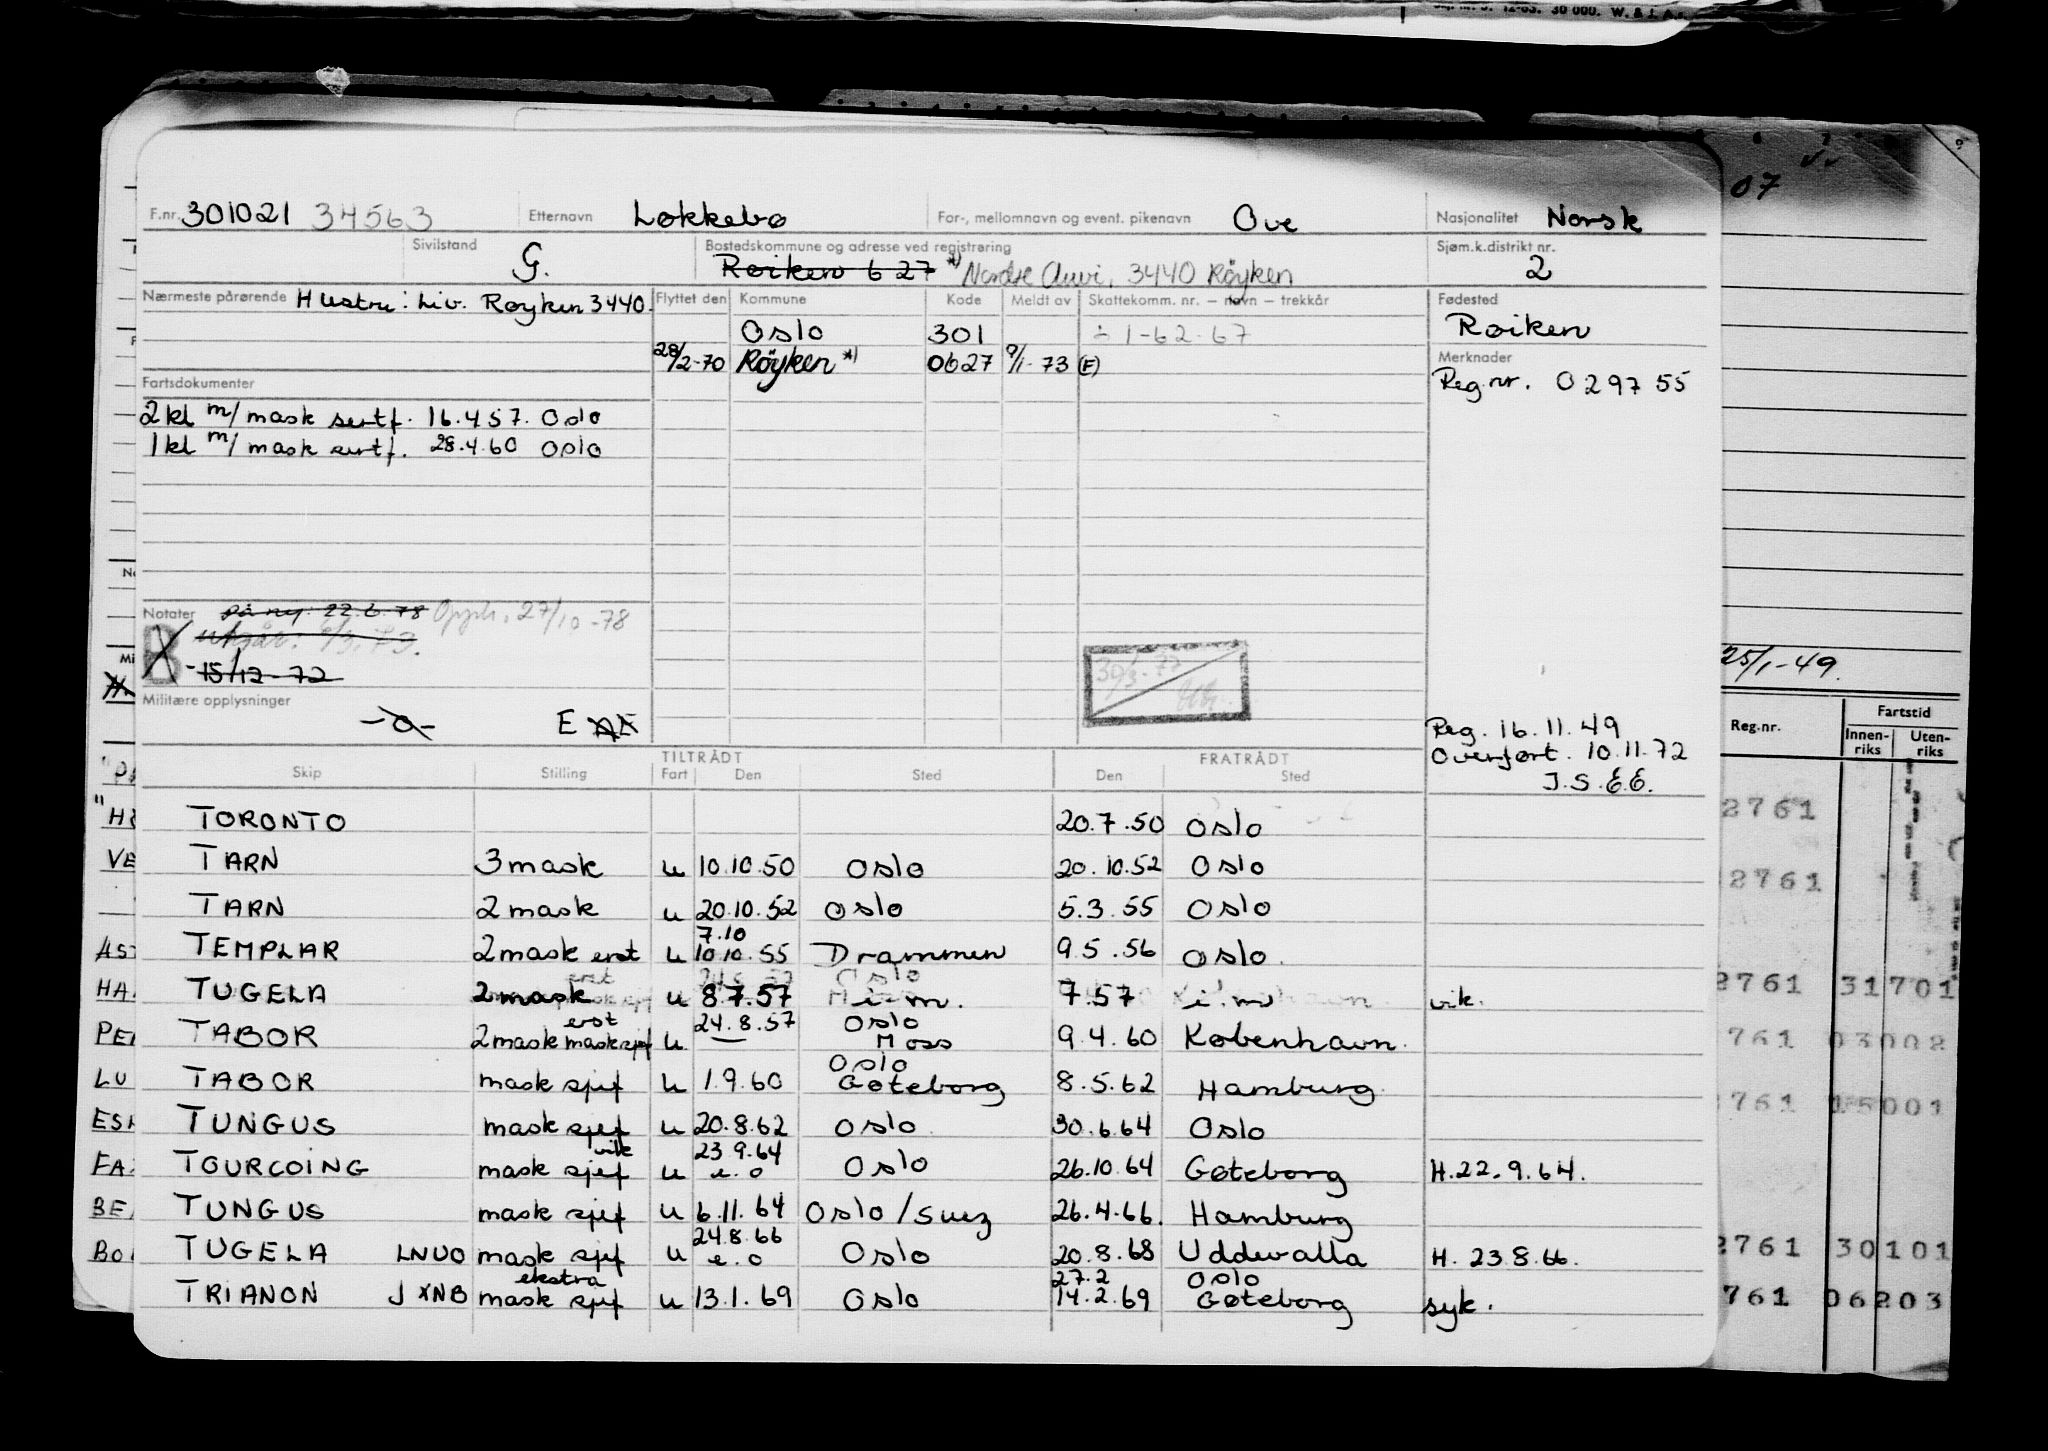 30 000. W. & J. A.
07
F.nr. 301021 34563 Etternavn Løkkebø For-, mellomnavn og event. pikenavn Ove Nasjonalitet Norsk
Sivilstand G. Bostedskommune og adresse ved registrering Røiken 627 *) Nordre 3440 Røyken Sjøm.k.distrikt nr. 2
Nærmeste pårørende Hustru: Liv. Røyken 3440. Flyttet den Kommune Kode Meldt av Skattekomm. nr. – navn – trekkår Fødested
Oslo 301 1-62-67 Røiken
28/2-70 Røyken *) 0627 9/1-73 (F) Merknader
Reg.nr. 029755
Fartsdokumenter
2 kl m/ mask sertf. 16.4 57. Oslo
1 kl m/ mask sertf. 28.4.60 Oslo
Notater på ny: 22.6.78 Opph. 27/10-78
utgår:
B -15/12-72
30/3-77
25/1-49.
Militære opplysninger
-o- E
Reg. 16.11.49
Overført. 10.11.72
J.S.E.E.
Reg.nr. Fartstid
Innen-riks Uten-riks
TILTRÅDT FRATRÅDT
Skip Stilling Fart Den Sted Den Sted
TORONTO 20.7.50 Oslo
2761
TARN 3 mask u 10.10.50 Oslo 20.10.52 Oslo
2761
TARN 2 mask u 20.10.52 Oslo 5.3.55 Oslo
7.10
TEMPLAR 2 mask erst u 10.10.55 Drammen 9.5.56 Oslo.
TUGELA 2 mask u 8.7.57 i.m. 7.57 i.m vik.
2761 31701
erst 24.8.57 Oslo
TABOR 2 mask masksjef u — Moss 9.4.60 København.
761 03002
Oslo
TABOR mask sjef u 1.9.60 Gøteborg 8.5.62 Hamburg.
761 15001
TUNGUS mask sjef u 20.8.62 Oslo 30.6.64 Oslo
vik 23.9.64
TOURCOING mask sjef u e.o Oslo 26.10.64 Gøteborg H.22.9.64.
TUNGUS mask sjef u 6.11.64 Oslo/Suez 26.4.66. Hamburg
24.8.66
TUGELA LNUO mask sjef u e.o Oslo 20.8.68 Uddevalla H. 23.8.66.
2761 30101
ekstra 27.2 Oslo
TRIANON JXNB mask sjef u 13.1.69 Oslo 14.2.69 Gøteborg syk.
761 06203